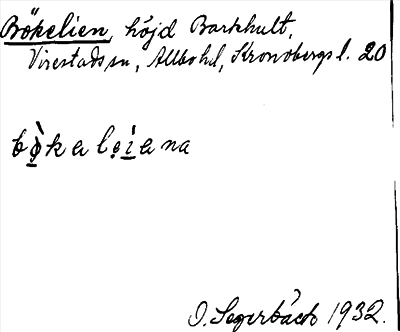 Bökelien, höjd Barkhult,
Virestads sn, Allbo hd, Kronobergs l. 20
bö̀kaleìana
O. Segerbäck 1932.